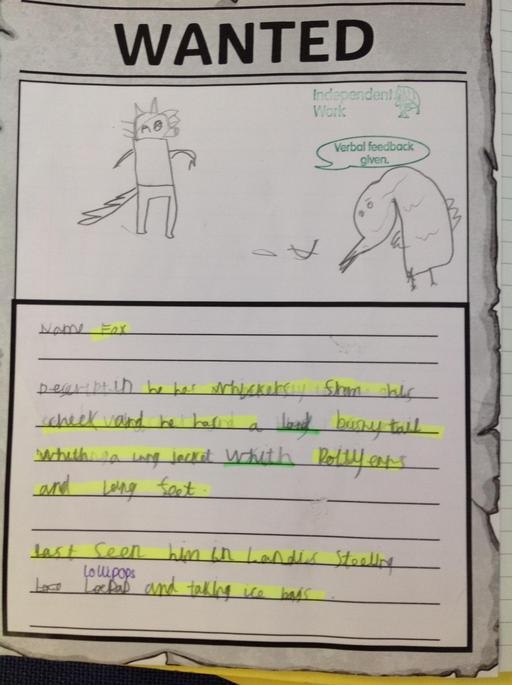 WANTED
Independent
Work
Verbal feedback
given.
Name Fox
he has whiskers
cheek and he has a long bushy tail
whith a long Jacket whith Poity ears
and long feet.
Last Seen him in Landis Steeling
Lollipops
and taking ice bags.